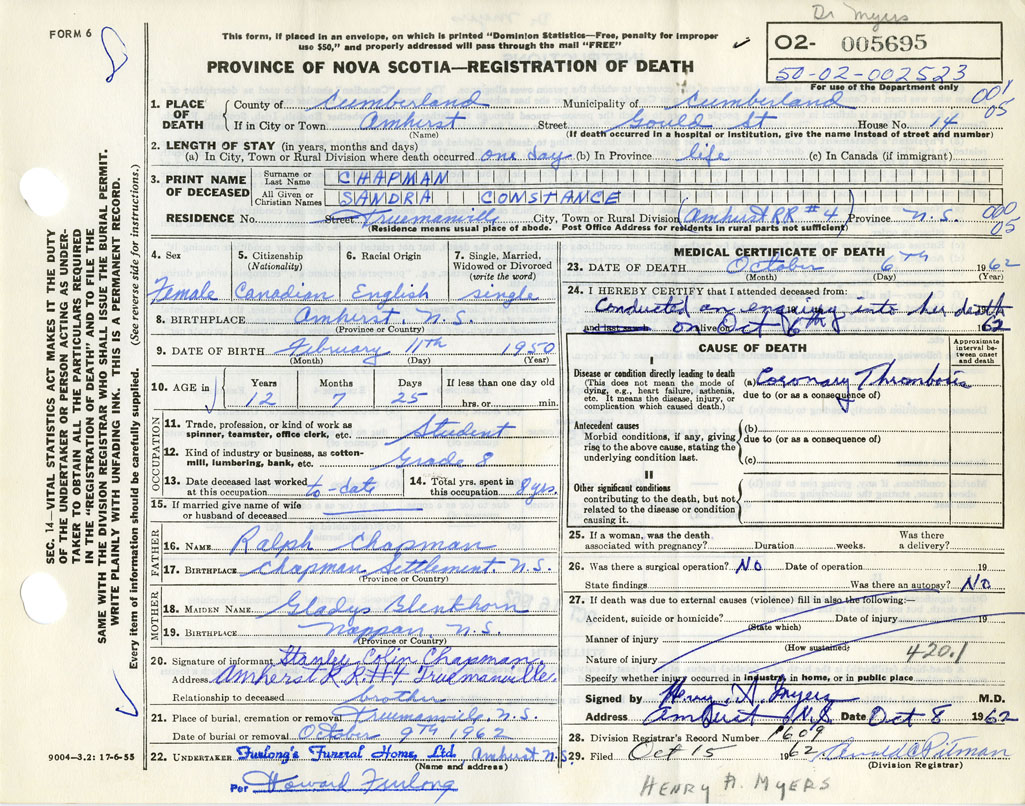 Dr Myers
FORM 6
This form, if placed in an envelope, on which is printed "Dominion Statistics—Free, penalty for improper
use $50," and properly addressed will pass through the mail "FREE"
✓
O2- 005695
50-02-002523
For use of the Department only
PROVINCE OF NOVA SCOTIA—REGISTRATION OF DEATH
1. PLACE OF DEATH County of Cumberland Municipality of Cumberland 001
If in City or Town Amherst Street Gould St House No. 14 05
(Name) (If death occurred in a hospital or institution, give the name instead of street and number)
2. LENGTH OF STAY (in years, months and days)
(a) In City, Town or Rural Division where death occurred one day (b) In Province life (c) In Canada (if immigrant)
3. PRINT NAME OF DECEASED Surname or Last Name CHAPMAN
All Given or Christian Names SANDRA CONSTANCE
RESIDENCE No. Street Truemanville City, Town or Rural Division (Amherst RR #4) Province N.S. 000
05
(Residence means usual place of abode. Post Office Address for residents in rural parts not sufficient)
4. Sex 5. Citizenship (Nationality) 6. Racial Origin 7. Single, Married, Widowed or Divorced (write the word)
Female Canadian English single
8. BIRTHPLACE Amherst, N.S.
(Province or Country)
9. DATE OF BIRTH February 11th 1950
(Month) (Day) (Year)
10. AGE in Years Months Days If less than one day old
12 7 25 hrs. or min.
OCCUPATION
11. Trade, profession, or kind of work as
spinner, teamster, office clerk, etc. Student
12. Kind of industry or business, as cotton-
mill, lumbering, bank, etc. Grade 8
13. Date deceased last worked
at this occupation to date
14. Total yrs. spent in
this occupation 8 yrs.
15. If married give name of wife
or husband of deceased
FATHER
16. NAME Ralph Chapman
17. BIRTHPLACE Chapman Settlement N.S.
(Province or Country)
MOTHER
18. MAIDEN NAME Gladys Blenkhorn
19. BIRTHPLACE Nappan, N.S.
(Province or Country)
20. Signature of informant Stanley Colin Chapman
Address Amherst R.R.#4 Truemanville
Relationship to deceased brother
21. Place of burial, cremation or removal Truemanville, N.S.
Date of burial or removal October 9TH 1962
22. UNDERTAKER Furlong's Funeral Home, Ltd. Amherst N.S.
(Name and address)
Per Howard Furlong
MEDICAL CERTIFICATE OF DEATH
23. DATE OF DEATH October 6TH 1962
(Month) (Day) (Year)
24. I HEREBY CERTIFY that I attended deceased from:
Conducted an enquiry into her death
and last saw alive on Oct 6th 62
CAUSE OF DEATH
Approximate interval between onset and death
I
Disease or condition directly leading to death
(This does not mean the mode of
dying, e.g., heart failure, asthenia,
etc. It means the disease, injury, or
complication which caused death.)
(a) Coronary Thrombosis
due to (or as a consequence of)
Antecedent causes
Morbid conditions, if any, giving
rise to the above cause, stating the
underlying condition last.
(b)
due to (or as a consequence of)
(c)
II
Other significant conditions
contributing to the death, but not
related to the disease or condition
causing it.
25. If a woman, was the death
associated with pregnancy? Duration weeks. Was there
a delivery?
26. Was there a surgical operation? NO Date of operation 19
State findings Was there an autopsy? NO
27. If death was due to external causes (violence) fill in also the following:—
Accident, suicide or homicide? Date of injury 19
(State which)
Manner of injury
(How sustained)
Nature of injury 420.1
Specify whether injury occurred in industry, in home, or in public place
Signed by Henry. A. Myers M.D.
Address Amherst N.S Date Oct 8 1962
28. Division Registrar's Record Number 1609
29. Filed Oct 15 1962
(Division Registrar)
HENRY A. MYERS
SEC. 14—VITAL STATISTICS ACT MAKES IT THE DUTY
OF THE UNDERTAKER OR PERSON ACTING AS UNDER-
TAKER TO OBTAIN ALL THE PARTICULARS REQUIRED
IN THE "REGISTRATION OF DEATH" AND TO FILE THE
SAME WITH THE DIVISION REGISTRAR WHO SHALL ISSUE THE BURIAL PERMIT.
WRITE PLAINLY WITH UNFADING INK. THIS IS A PERMANENT RECORD.
Every item of information should be carefully supplied. (See reverse side for instructions.)
9004—3.2: 17-6-55